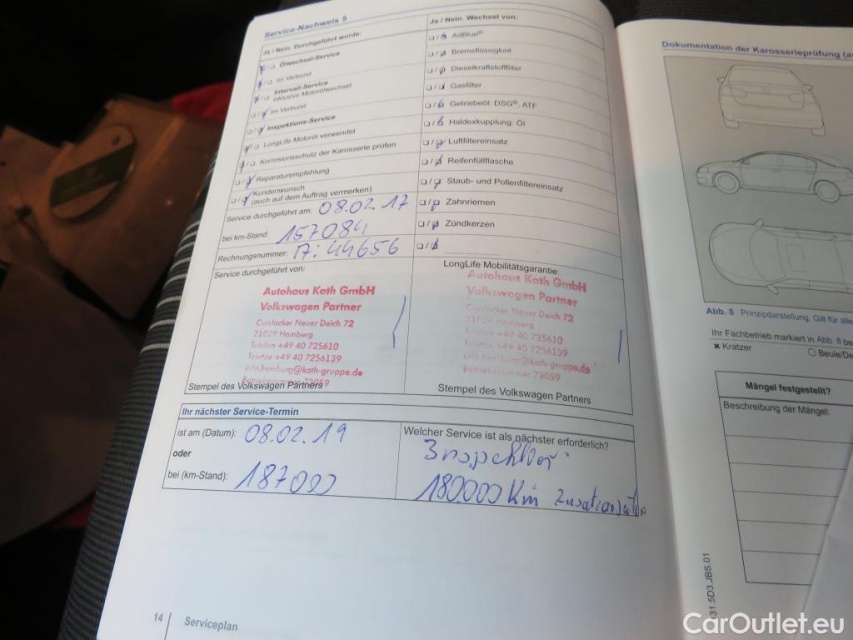 Service-Nachweis 5
Ja / Nein. Durchgeführt wurde:
Ölwechsel-Service
im Verbund
Intervall-Service
inklusive Motorölwechsel
im Verbund
Inspektions-Service
LongLife Motoröl verwendet
Korrosionsschutz der Karosserie prüfen
Reparaturempfehlung
Kundenwunsch
(auch auf dem Auftrag vermerken)
Service durchgeführt am: 08.02.17
bei km-Stand: 157084
Rechnungsnummer: 17:44656
Service durchgeführt von:
Autohaus Kath GmbH
Volkswagen Partner
Curslacker Neuer Deich 72
21029 Hamburg
Telefon +49 40 725610
Telefax +49 40 7256139
info.hamburg@kath-gruppe.de
Stempel des Volkswagen Partners
Ja / Nein. Wechsel von:
AdBlue®
Bremsflüssigkeit
Dieselkraftstofffilter
Gasfilter
Getriebeöl: DSG®, ATF
Haldexkupplung: Öl
Luftfiltereinsatz
Reifenfüllflasche
Staub- und Pollenfiltereinsatz
Zahnriemen
Zündkerzen
LongLife Mobilitätsgarantie:
Autohaus Kath GmbH
Volkswagen Partner
Curslacker Neuer Deich 72
21029 Hamburg
Telefon +49 40 725610
Telefax +49 40 7256139
info.hamburg@kath-gruppe.de
Stempel des Volkswagen Partners
Ihr nächster Service-Termin
ist am (Datum): 08.02.19
oder
bei (km-Stand): 187000
Welcher Service ist als nächster erforderlich?
180000 Km
14 Serviceplan
Dokumentation der Karosserieprüfung
Abb. 8 Prinzipdarstellung. Gilt für alle
Ihr Fachbetrieb markiert in Abb. 8
Kratzer
Mängel festgestellt?
Beschreibung der Mängel:
31.5D3.JBS.01
CarOutlet.eu